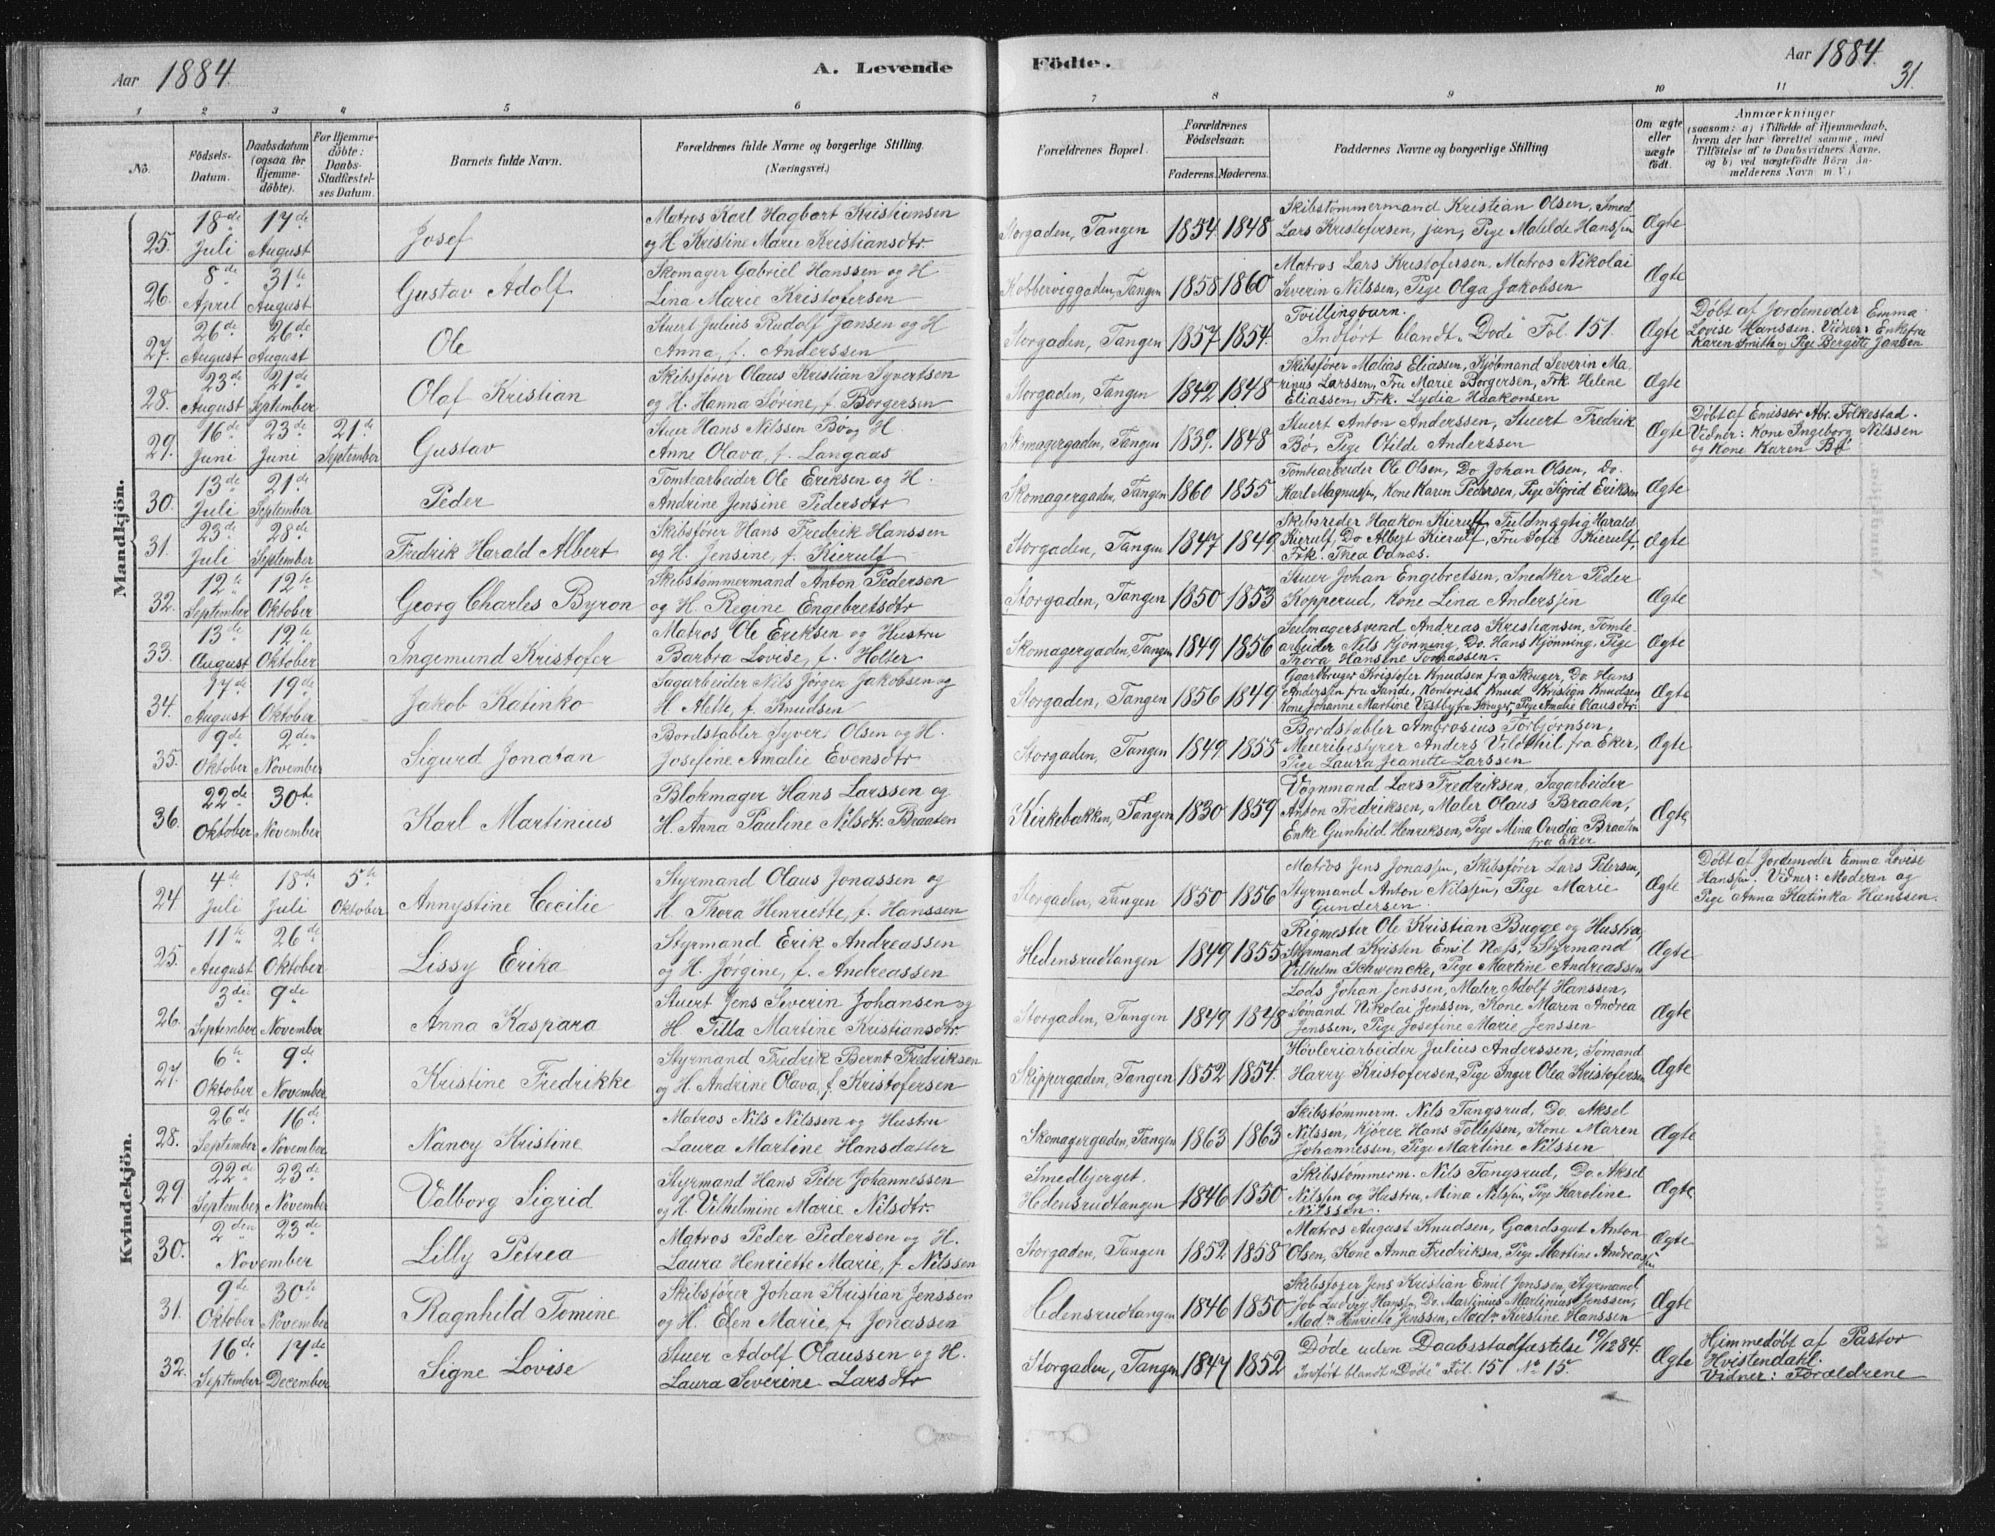 Aar 1884. A. Levende Födte. Aar 1884. 31.
1 2 3 4 5 6 7 8 9 10 11
No. Födsels-Datum. Daabsdatum (ogsaa for Hjemmedöbte). For Hjemmedöbte: Daabs-Stadfæstelses Datum. Barnets fulde Navn. Forældrenes fulde Navne og borgerlige Stilling. (Næringsvei.) Forældrenes Bopæl. Forældrenes Födselsaar. Faderens. Moderens. Faddernes Navne og borgerlige Stilling Om ægte eller uægte födt. Anmærkninger (saasom: a) i Tilfælde af Hjemmedaab, hvem der har forrettet samme, med Tilföielse af to Daabsvidners Navne, og b) ved uægtefödte Börn Anmelderens Navn m. V.)
Mandkjön.
25. 18de Juli 17de August Josef
Matros Karl Hagbart Kristiansen
og H. Kristine Marie Kristiansdtr
Storgaden, Tangen 1854 1848
Skibstømmermand Kristian Olsen, Smed
Lars Kristofersen, jun, Pige Matilde Hanssen
Ægte
26. 8de April 31te August Gustav Adolf
Skomager Gabriel Hanssen og H
Lina Marie Kristofersen
Kobberviggaden, Tangen 1858 1860
Matros Lars Kristofersen. Matros Nikolai
Severin Nilssen, Pige Olga Jakobsen
Ægte
27. 26de August 26de August Ole
Stuert Julius Rudolf Jansen og H
Anna, f. Anderssen
Storgaden, Tangen 1857 1854.
Tvillingbarn.
Indført blandt "Døde" Fol. 151.
Ægte
Døbt af Jordemoder Emma
Lovise Hanssen. Vidner: Enkefru
Karen Smith og Pige Bergitte Jansen
28. 23de August 21de September Olaf Kristian
Skibsfører Olaus Kristian Syvertsen
og H. Hanna Sørine, f. Borgersen
Storgaden, Tangen 1842 1848
Skibsfører Matias Eliassen, Kjøbmand Severin Ma-
rinus Larssen, Fru Marie Borgersen, Frk Helene
Eliassen, Frk. Lydia Haakonsen
Ægte
29. 16de Juni 23de Juni 21de September Gustav
Stuer Hans Nilssen Bø og H.
Anne Olava, f. Langaas
Skomagergaden, Tangen 1839. 1848
Stuert Anton Anderssen, Stuert Fredrik
Bø, Pige Otilde Anderssen
Ægte
Døbt af Emissær Abr. Folkestad.
Vidner: Kone Ingeborg Nilssen
og Kone Karen Bø
30. 13de Juli 21de September Peder
Tomtearbeider Ole Eriksen og H.
Andrine Jensine Pedersdtr
Skomagergaden, Tangen 1860 1855
Tomtearbeider Ole Olsen, Do Johan Olsen, Do.
Karl Magnussen, Kone Karen Pedersen, Pige Sigrid Eriksen
Ægte
31. 23de Juli 28de September Fredrik Harald Albert
Skibsfører Hans Fredrik Hanssen
og H. Jensine, f. Kierulf
Storgaden, Tangen 1847 1849
Skibsreder Haakon Kierulf, Fuldmægtig Harald
Kierulf, Do Albert Kierulf, Fru Sofie Kierulf,
Frk. Thea Odnæs.
Ægte
32. 12te September 12te Oktober Georg Charles Byron
Skibstømmermand Anton Pedersen
og H. Regine Engebretsdtr
Storgaden, Tangen 1850 1853
Stuer Johan Engebretsen, Snedker Peder
Kopperud, Kone Lina Anderssen
Ægte
33. 13de August 12te Oktober Ingemund Kristofer
Matros Ole Eriksen og Hustru
Barbra Lovise, f. Holter
Skomagergaden, Tangen 1849 1856
Seilmagersvend Andreas Kristiansen, Tomte-
arbeider Nils Kjønning, Do. Hans Kjønning, Pige
Thora Hansine Tomassen.
Ægte
34. 17de August 19de Oktober Jakob Katinko
Sagarbeider Nils Jørgen Jakobsen og
H. Alette, f. Knudsen
Storgaden, Tangen 1856 1849
Gaardbruger Kristofer Knudsen fra Skouger, Do. Hans
Anderssen fra Sande, Kontorist Knud Kristian Knudsen
Kone Johanne Martine Vestby fra Skouger, Pige Amalie Olausdtr.
Ægte
35. 9de Oktober 2den November Sigurd Jonatan
Bordstabler Syver Olsen og H.
Josefine Amalie Evensdtr
Storgaden, Tangen 1849. 1855
Bordstabler Ambrosius Torbjørnsen,
Meieribestyrer Anders Vildthil fra Eker,
Pige Laura Jeanette Larssen
Ægte
36. 22de Oktober 30te November Karl Martinius
Blokmager Hans Larssen og
H. Anna Pauline Nilsdtr. Braaten
Kirkebakken, Tangen 1830 1859
Vognmand Lars Fredriksen, Sagarbeider
Anton Fredriksen, Maler Olaus Braaten,
Enke Gunhild Henriksen, Pige Mina Ovidia Braaten
fra Eker
Ægte
Kvindekjön.
24 4de Juli 18de Juli 5te Oktober Annystine Cecilie
Styrmand Olaus Jonassen og
H. Thora Henriette, f. Hanssen
Storgaden, Tangen 1850 1856
Matros Jens Jonassen, Skibsfører Lars Petersen,
Styrmand Anton Nilssen, Pige Marie
Gundersen.
Ægte
Døbt af Jordemoder Emma Lovise
Hanssen. Vidner: Moderen og
Pige Anna Katinka Hanssen.
25. 11te August 26de Oktober Lissy Erika
Styrmand Erik Andreassen
og H. Jørgine, f. Andreassen
Hedensrudtangen 1849 1855
Rigmester Ole Kristian Bugge og Hustru,
Styrmand Kristen Emil Næss, Styrmand
Vilhelm Schwencke, Pige Martine Andreassen
Ægte
26. 3die September 9de November Anna Kaspara
Stuert Jens Severin Johansen og
H. Pilla Martine Kristiansdtr
Storgaden, Tangen 1849 1848
Lods Johan Jenssen, Maler Adolf Hanssen,
Sømand Nikolai Jenssen, Kone Maren Andrea
Jenssen, Pige Josefine Marie Jenssen
Ægte
27. 6te Oktober 9de November Kristine Fredrikke
Styrmand Fredrik Bernt Fredriksen
og H. Andrine Olava, f. Kristofersen
Skippergaden, Tangen 1852 1854.
Høvleriarbeider Julius Anderssen, Sømand
Harry Kristofersen, Pige Inger Olea Kristofersen
Ægte
28. 26de September 16de November Nancy Kristine
Matros Nils Nilssen og Hustru
Laura Martine Hansdatter
Skomagergaden, Tangen 1863 1863
Skibstømmerm. Nils Tangsrud, Do. Aksel
Nilssen, Kjører Hans Tollefsen, Kone Maren
Johannessen, Pige Martine Nilssen
Ægte
29 22de September 23de November Valborg Sigrid
Styrmand Hans Peter Johannessen
og H. Vilhelmine Marie Nilsdtr.
Smedbjerget.
Hedensrudtangen 1846 1850
Skibstømmerm. Nils Tangsrud, Do. Aksel
Nilssen og Hustru, Mina Nilssen, Pige Karoline
Nilssen.
Ægte
30. 2den 23de November Lilly Petrea
Matros Peder Pedersen og H.
Laura Henriette Marie, f. Nilssen
Storgaden, Tangen 1852 1858
Matros August Knudsen, Gaardsgut Anton
Olsen, Kone Anna Fredriksen, Pige Martine Andreassen
Ægte
31. 9de Oktober 30te November Ragnhild Tomine
Skibsfører Johan Kristian Jenssen
og H. Elen Marie, f. Jonassen
Hedensrudtangen 1846 1850
Skibsfører Jens Kristian Emil Jonssen, Styrmand
Job Ludvig Hanssen, Do. Martinius Martinius Jenssen,
Madm Henriette Jenssen, Madm Kirstine Hanssen
Ægte
32. 16de September 17de December Signe Lovise
Stuer Adolf Olaussen og H.
Laura Severine Larsdtr
Storgaden, Tangen 1847 1852
Døde uden Daabsstadfæstelse 19/12 84.
Indført blandt "Døde" Fol. 151 No 15.
Ægte
Hjemmedøbt af Pastor
Hvistendahl.
Vidner: Forældrene